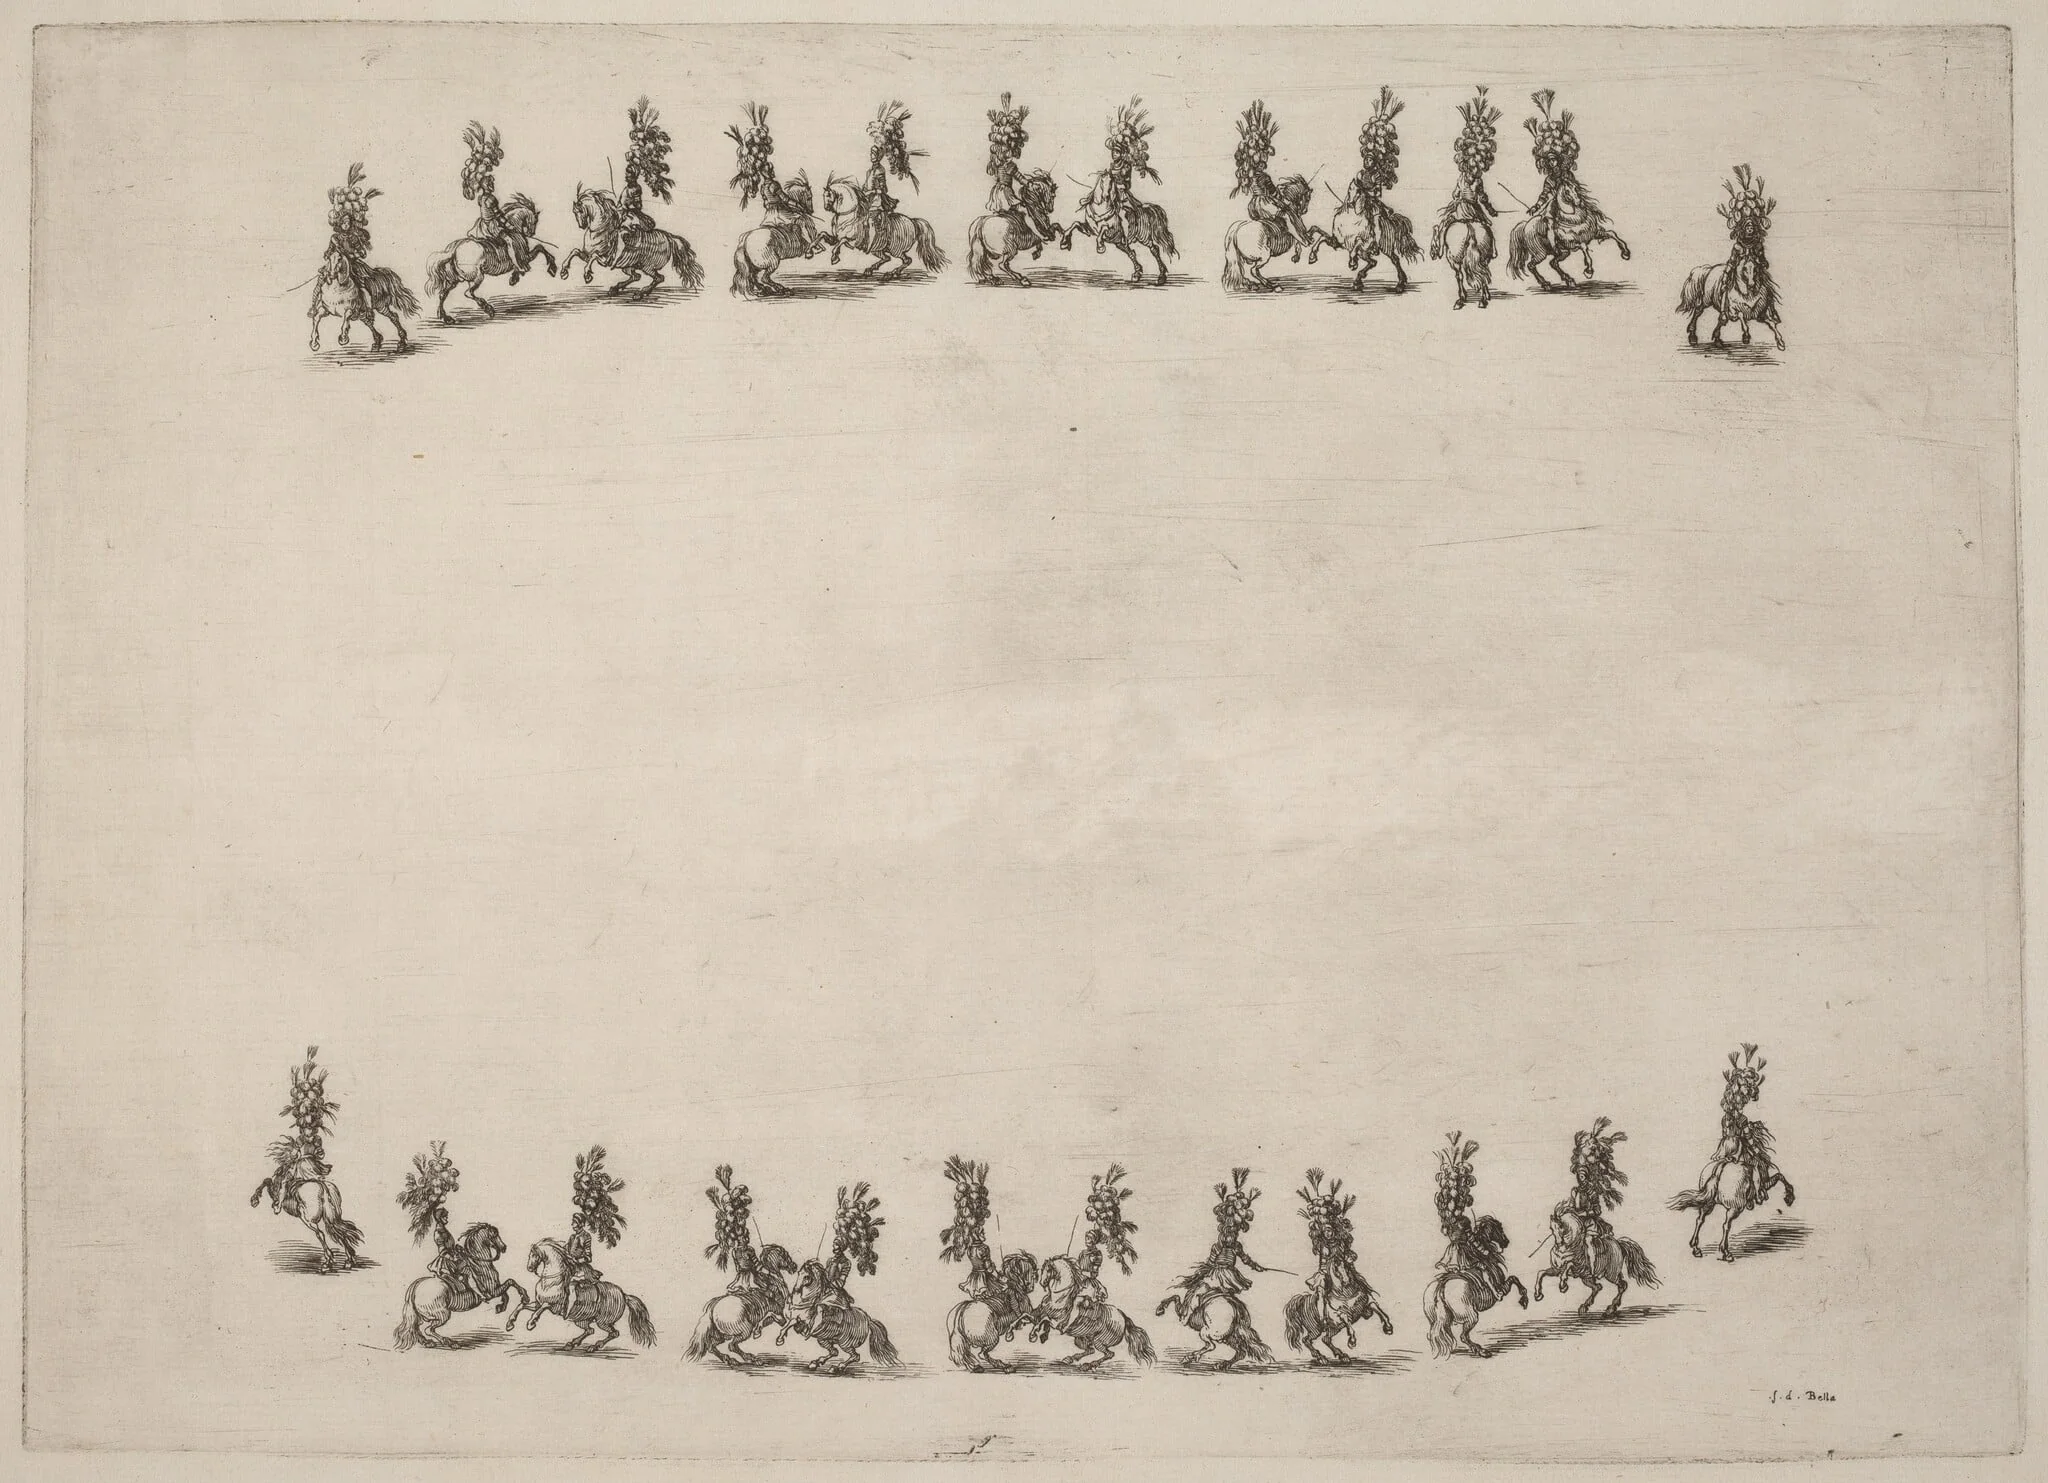 .s. d. Bella